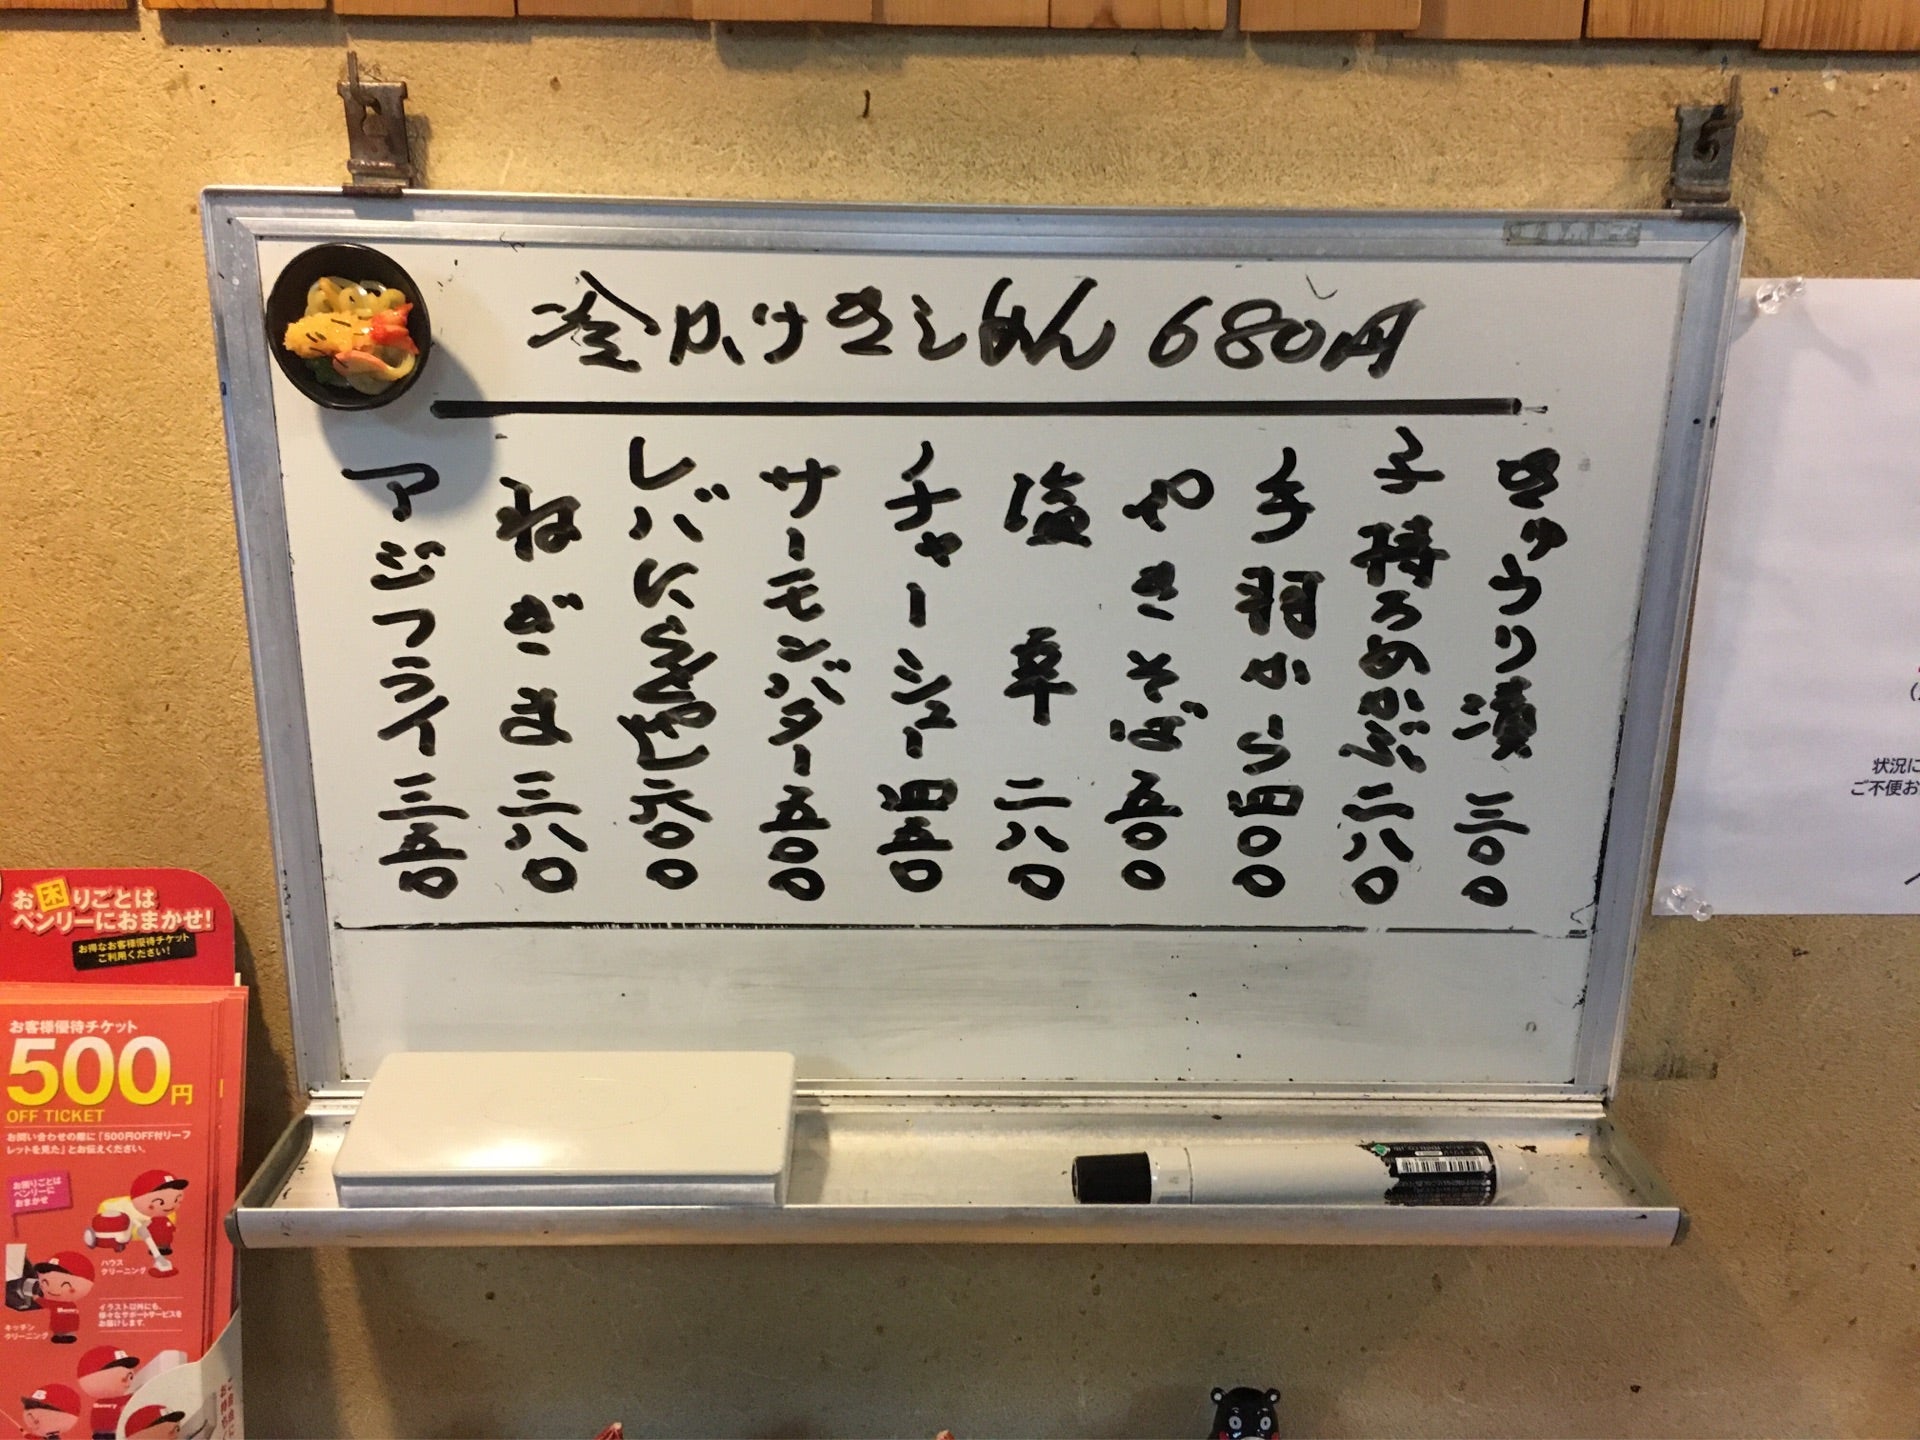 冷かけきしめん 680円
きゅうり漬 三〇〇
子持ちめかぶ 二八〇
手羽から 四〇〇
やきそば 五〇〇
塩 辛 二八〇
チャーシュー 四五〇
サーモンバター 五〇〇
レバにらもやし 六〇〇
ねぎま 三八〇
アジフライ 三五〇
お困りごとは
ベンリーにおまかせ!
お得なお客様優待チケット
ご利用ください!
お客様優待チケット
500円
OFF TICKET
お問い合わせの際に「500円OFF付リーフ
レットを見た」とお伝えください。
お困りごとは
ベンリーに
おまかせ
ハウス
クリーニング
キッチン
クリーニング
イラスト以外にも、
様々なサポートサービスを
お届けします。
状況に
ご不便お